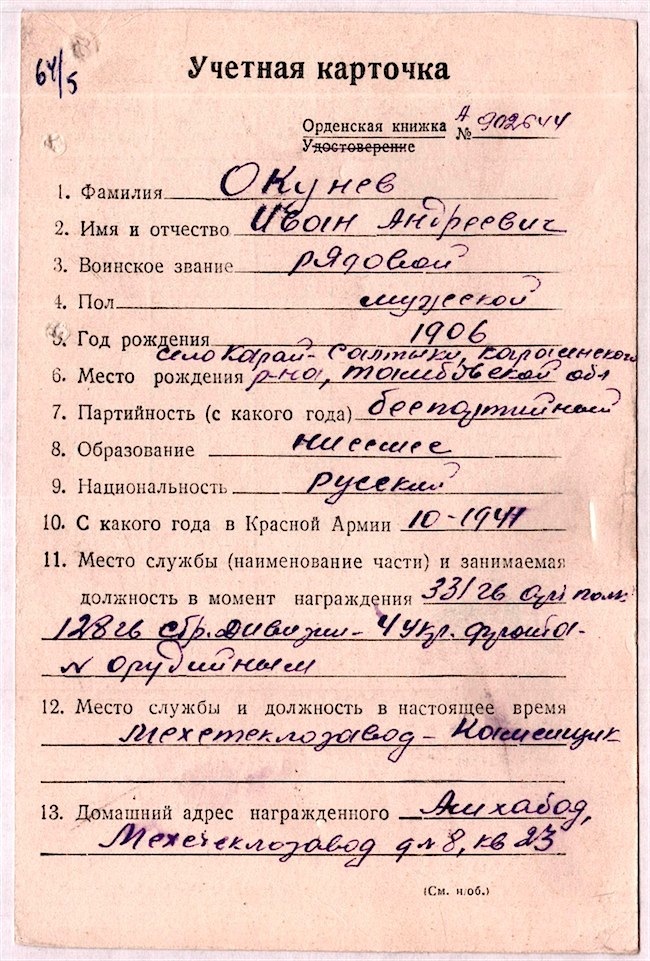 64/5
Учетная карточка
Орденская книжка А № 902644
Удостоверение
1. Фамилия Окунев
2. Имя и отчество Иван Андреевич
3. Воинское звание рядовой
4. Пол мужской
5. Год рождения 1906
село Карай-Салтыки,
6. Место рождения р-на, Тамбовской обл
7. Партийность (с какого года) беспартийный
8. Образование низшее
9. Национальность русский
10. С какого года в Красной Армии 10-1941
11. Место службы (наименование части) и занимаемая
должность в момент награждения 331 гв стр полк
128 гв стр. Дивизии - 4 Укр. фронта -
орудийным
12. Место службы и должность в настоящее время
Мехстеклозавод - Каменщик
13. Домашний адрес награжденного Ашхабад,
Мехстеклозавод д № 8, кв 23
(См. н/об.)